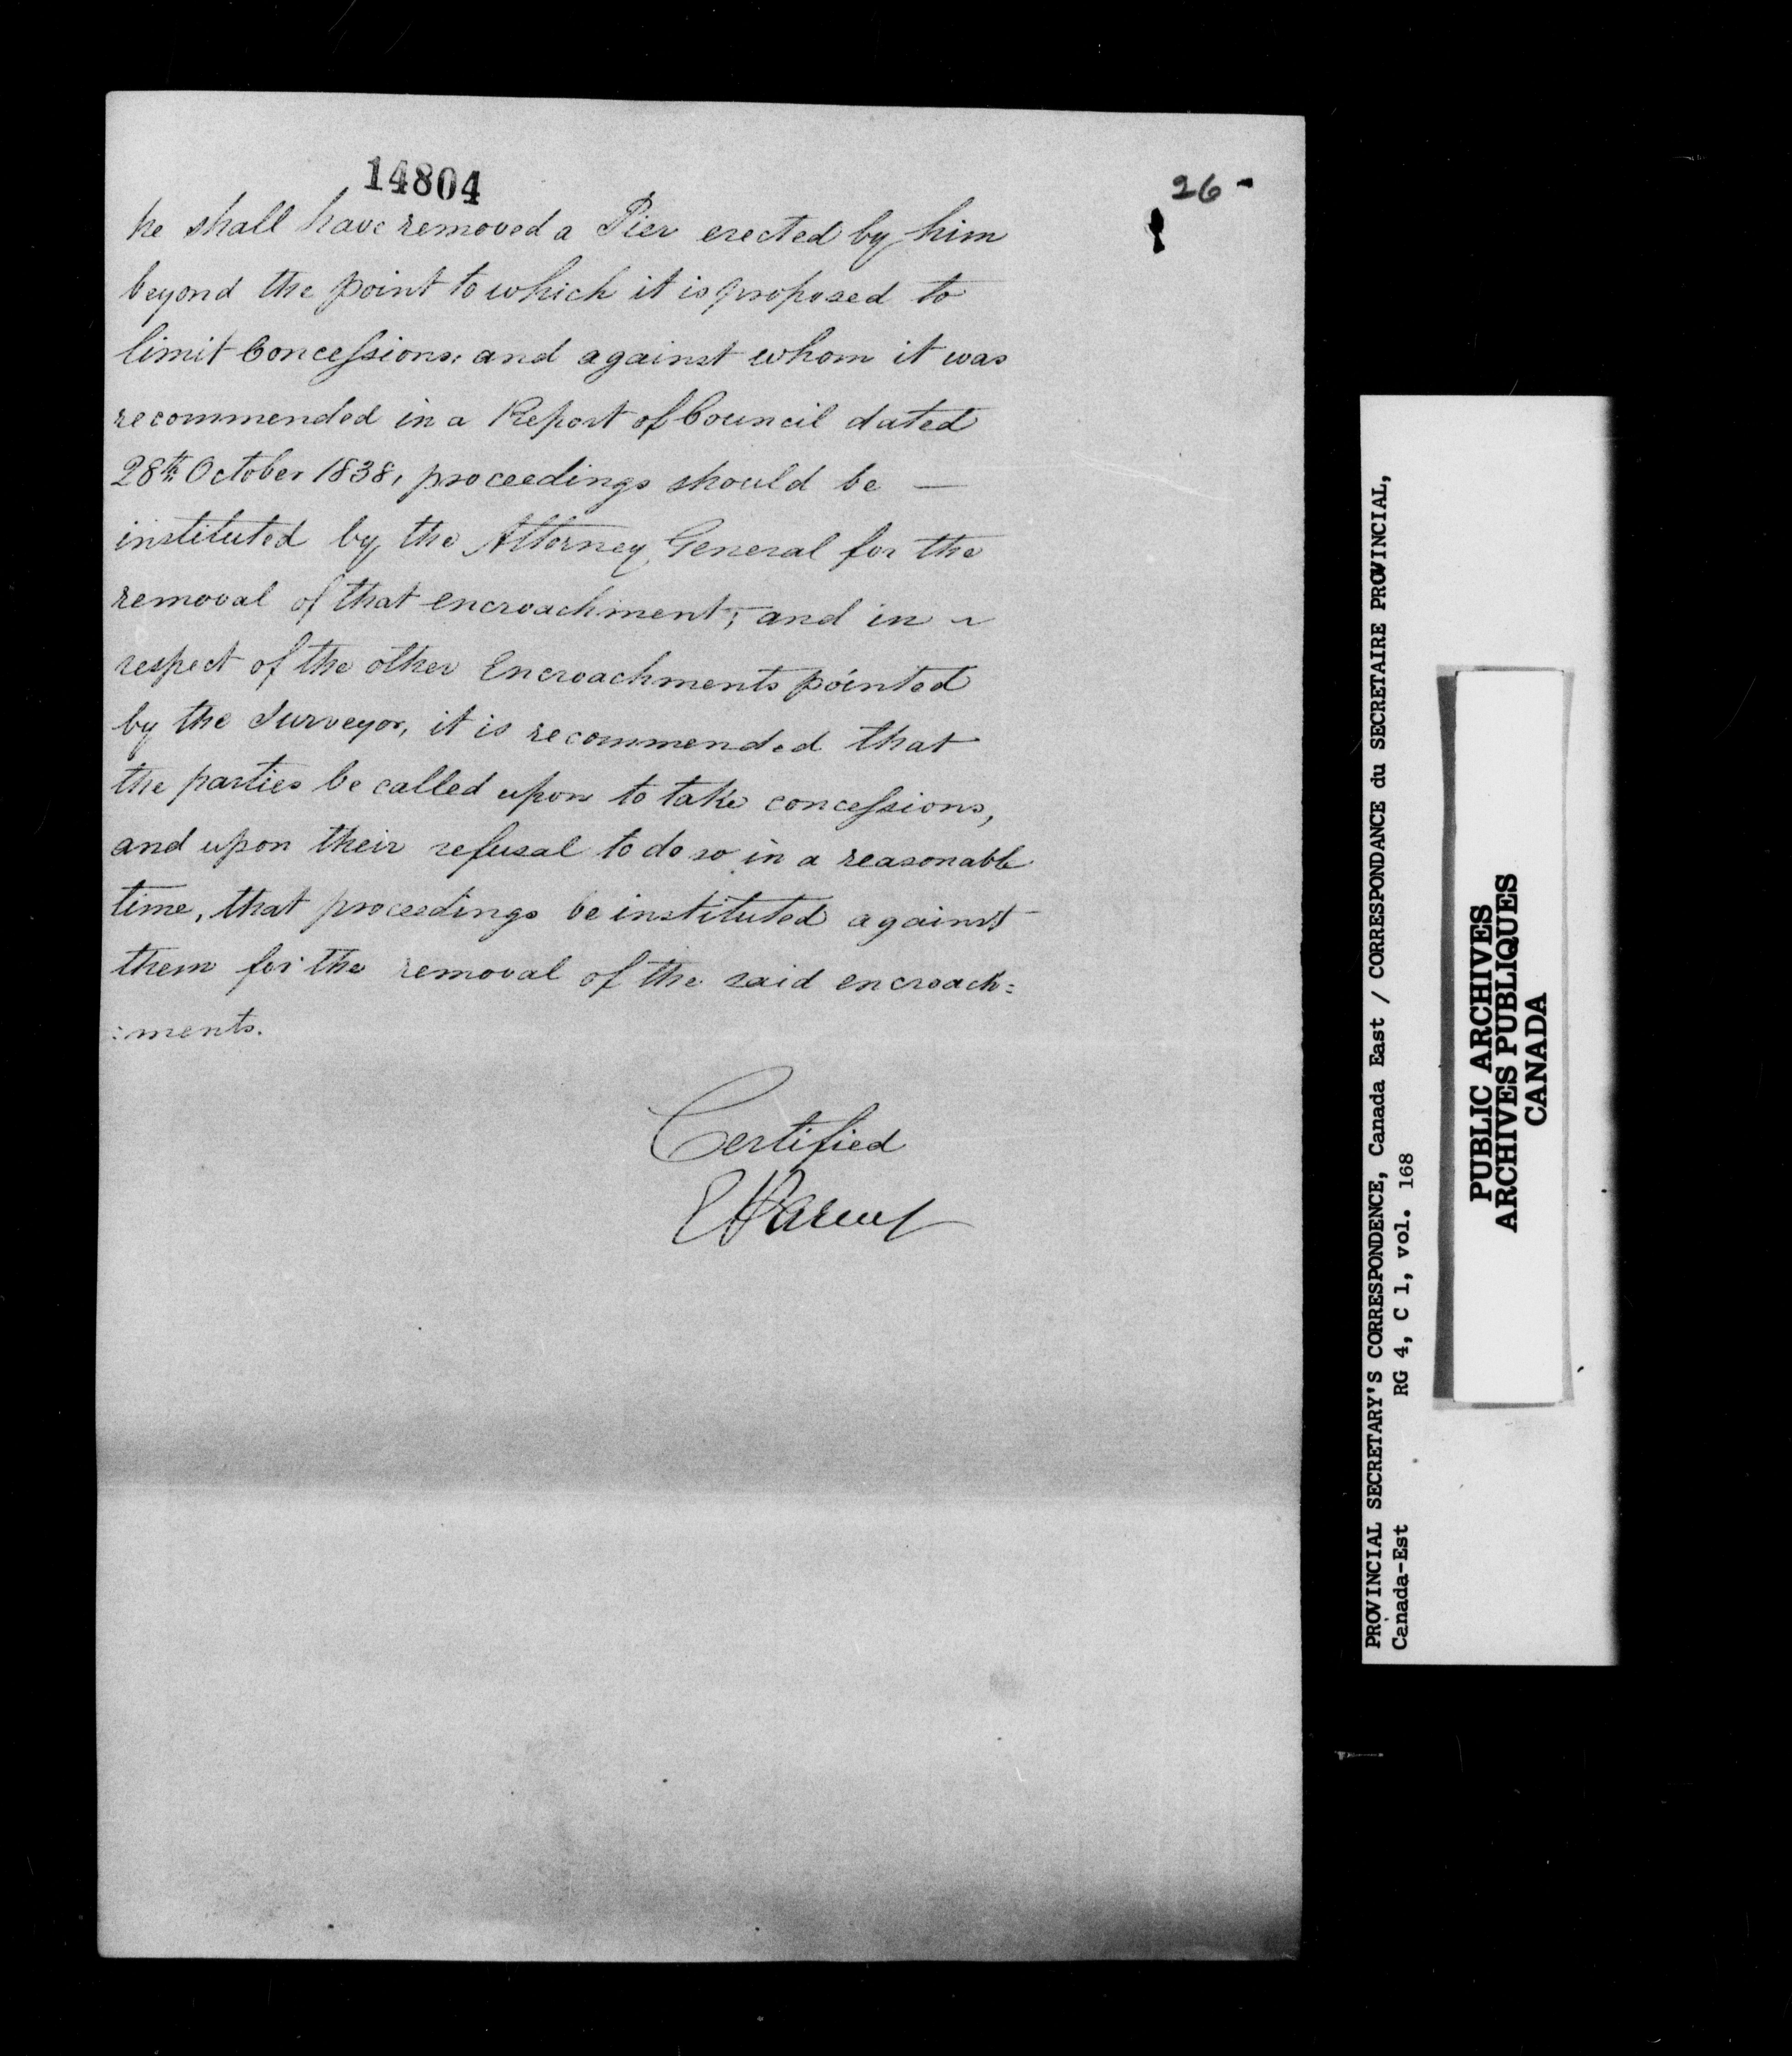 14804
26-
he shall have removed a Pier erected by him
beyond the point to which it is proposed to
limit Concessions, and against whom it was
recommended in a Report of Council dated
28th October 1838, proceedings should be —
instituted by the Attorney General for the
removal of that encroachment; and in
respect of the other Encroachments pointed
by the Surveyor, it is recommended that
the parties be called upon to take concessions,
and upon their refusal to do so in a reasonable
time, that proceedings be instituted against
them for the removal of the said encroach=
:ments.
Certified
PROVINCIAL SECRETARY'S CORRESPONDENCE, Canada East / CORRESPONDANCE du SECRETAIRE PROVINCIAL,
Canada-Est RG 4, C 1, vol. 168
PUBLIC ARCHIVES
ARCHIVES PUBLIQUES
CANADA